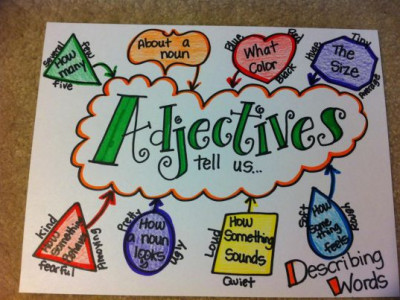 several
few
How
many
five
About a
noun
Blue
Red
What
Color
Black
Huge
Tiny
The
Size
Average
Adjectives
tell us...
Kind
How
something
Behaves
Annoying
fearful
Pretty
How
a noun
looks
ugly
Loud
How
Something
Sounds
Quiet
Soft
Rough
How
some
thing
feels
Describing
Words